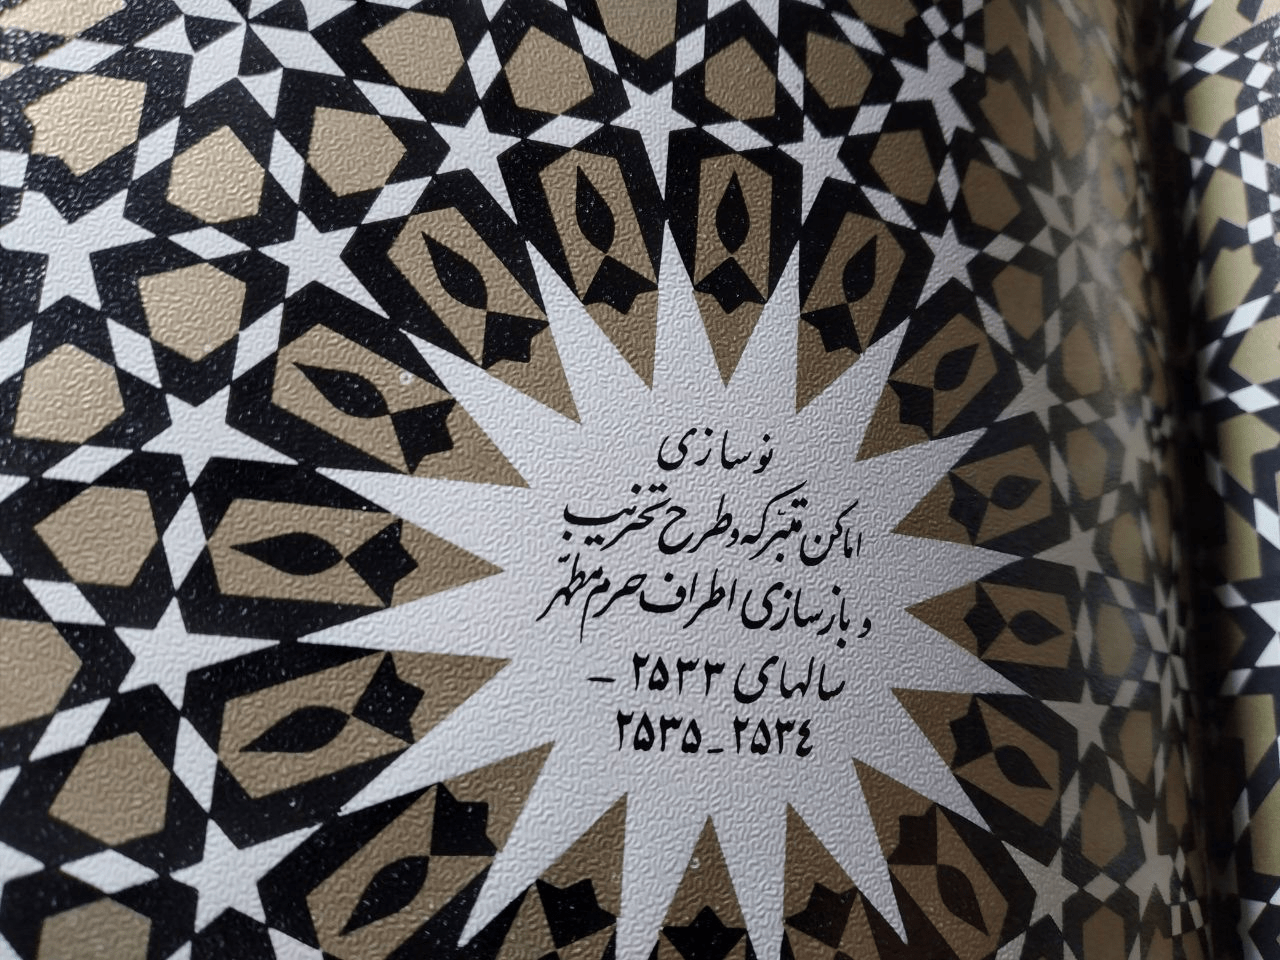 نوسازی
اماکن متبّرکه و طرح تخریب
و بازسازی اطراف حرم مطهّر
سالهای ۲۵۳۳ –
۲۵۳٤ – ۲۵۳۵